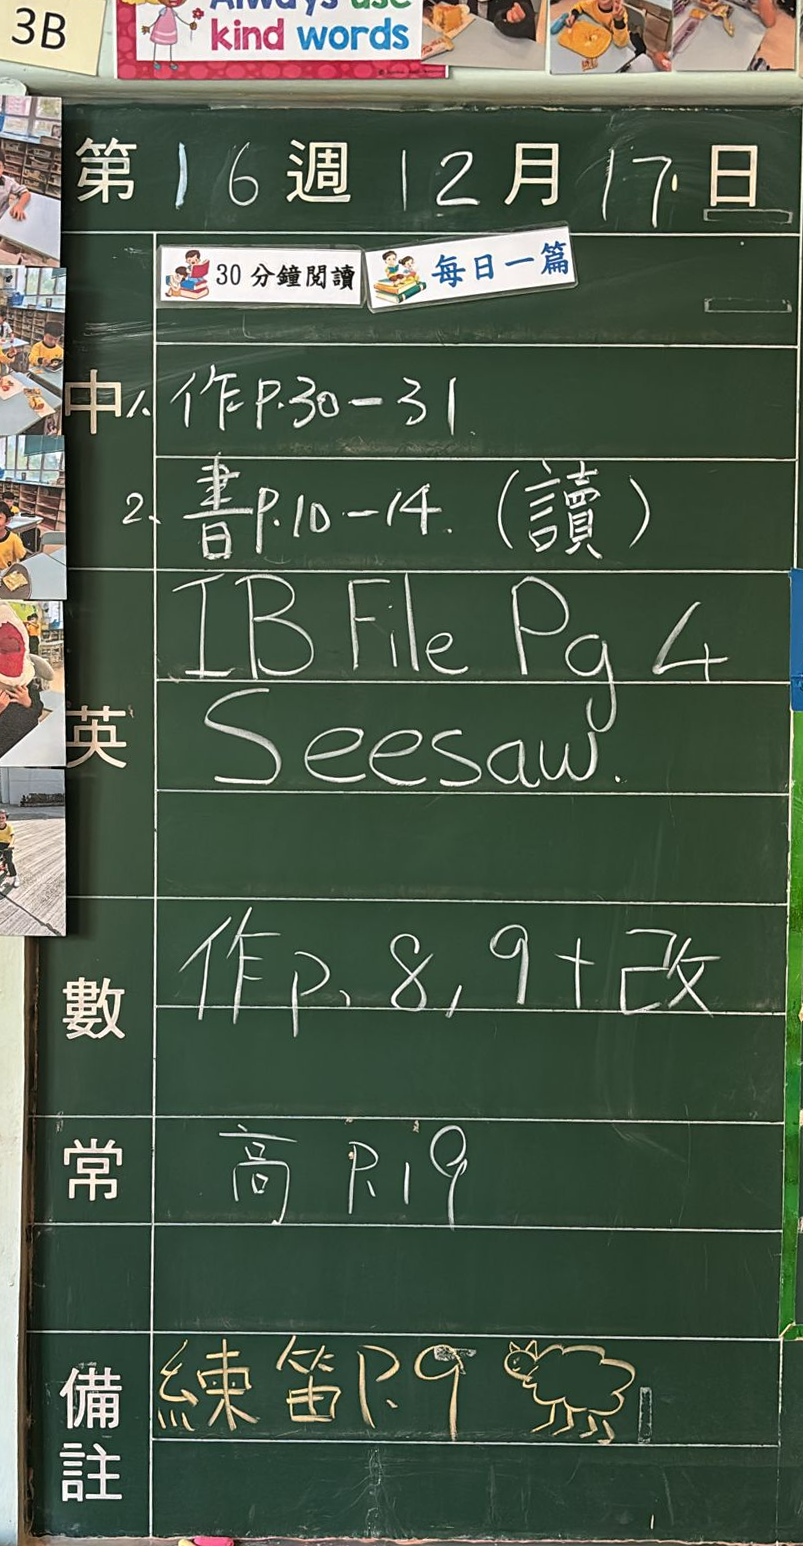 3B
Always use
kind words
第16週12月17日
30分鐘閱讀 每日一篇
中 1、作P.30-31
2、書P.10-14.(讀)
IB File Pg 4
英 Seesaw.
數 作p、8,9+改
常 高 P.19
備註 練笛P.9